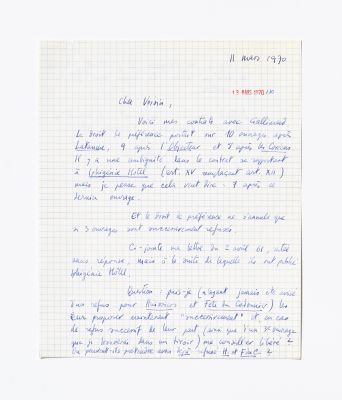 11 mars 1970
13 MARS 1970
Cher Voisin,
Voici mes contrats avec Gallimard
Le droit de préférence portait sur 10 ouvrages après
Lataume, 9 après l'Objecteur et 8 après Les Coréens
Il y a une ambiguïté dans le contrat se rapportant
à Iphigénie Hôtel (art. XV remplaçant art. XII)
mais je pense que cela veut dire : 7 après ce
dernier ouvrage.
Et le droit de préférence ne s'annule que
si 3 ouvrages sont successivement refusés.
Ci-jointe ma lettre du 2 avril 61, restée
sans réponse, mais à la suite de laquelle ils ont publié
Iphigénie Hôtel.
Question : puis-je (n'ayant jamais été avisé
d'un refus pour Huissiers et Fête du Cordonnier) les
leur proposer maintenant "successivement" et en cas
de refus successif de leur part (ainsi que d'un 3e ouvrage
que je trouverai dans un tiroir) me considérer libéré ?
Ou peuvent-ils prétendre avoir déjà refusé H et FduC ?